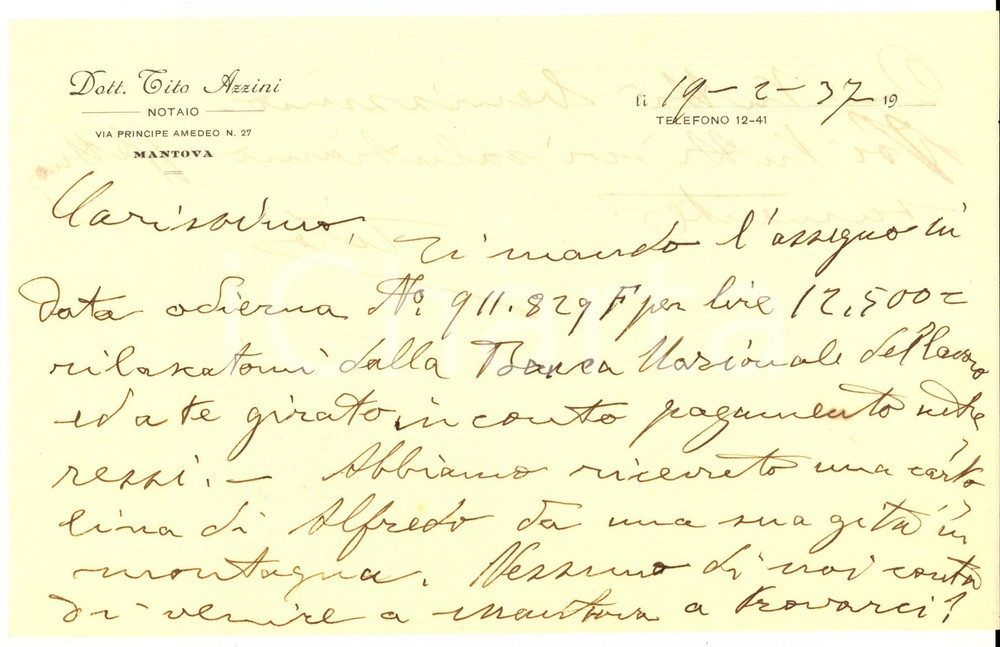 Dott. Tito Azzini
NOTAIO
VIA PRINCIPE AMEDEO N. 27
MANTOVA
lì 19-2-37 19
TELEFONO 12-41
Carissimo,
ti mando l'assegno in
data odierna No. 911.829 F per lire 12.500=
rilasciatomi dalla Banca Nazionale del Lavoro
ed a te girato, in conto pagamento inte
ressi. — Abbiamo ricevuto una carto
lina di Alfredo da una sua gita in
montagna. Nessuno di voi conta
di venire a Mantova a trovarci?
iCharta